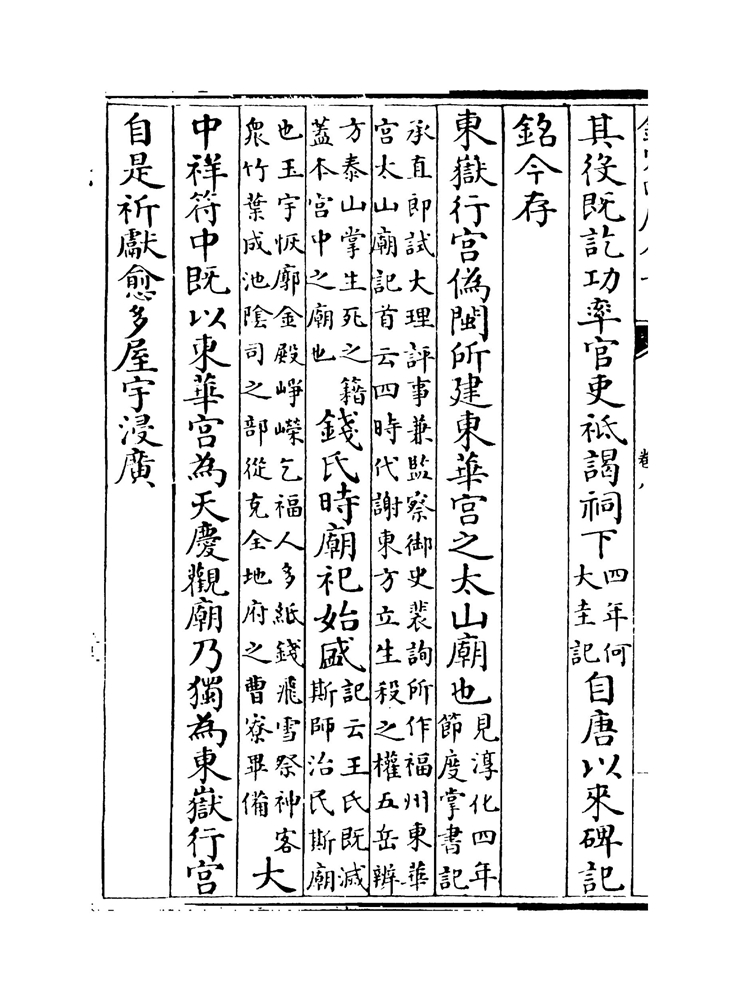 卷八
其役既訖功率官吏祗謁祠下四年何
大圭記自唐以來碑記
銘今存
東嶽行宮偽閩所建東華宮之太山廟也見淳化四年
節度掌書記
承直郎試大理評事兼監察御史裴詢所作福州東華
宮太山廟記首云四時代謝東方立生殺之權五岳辨
方泰山掌生死之籍
蓋本宮中之廟也錢氏時廟祀始盛記云王氏既滅
斯師治民斯廟
也玉宇恢廓金殿崢嶸乞福人多紙錢飛雪祭神客
衆竹葉成池陰司之部從克全地府之曹寮畢備大
中祥符中既以東華宮為天慶觀廟乃獨為東嶽行宮
自是祈獻愈多屋宇浸廣